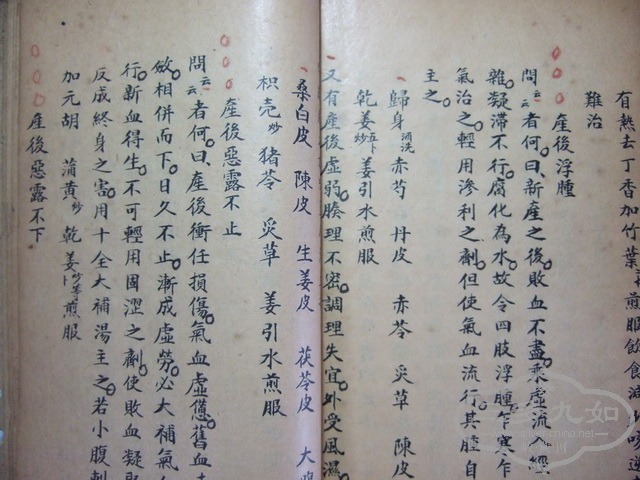 有熱去丁香加竹葉再煎服飲食減
難治
產後浮腫
問云云者何曰新產之後敗血不盡乘虛流入經
雜凝滯不行腐化為水故令四肢浮腫乍寒乍
氣治之輕用滲利之劑但使氣血流行其腫自
主之
歸身酒洗 赤芍 丹皮 赤苓 炙草 陳皮
乾姜炒 五卜 姜引水煎服
又有產後虛弱腠理不密調理失宜外受風濕
桑白皮 陳皮 生姜皮 茯苓皮 大
枳壳炒 猪苓 炙草 姜引水煎服
產後惡露不止
問云云者何曰產後衝任損傷氣血虛憊舊血
斂相併而下日久不止漸成虛勞必大補氣
行新血得生不可輕用固澀之劑使敗血凝聚
反成終身之害用十全大補湯主之若小腹刺
加元胡 蒲黃炒 乾姜炒 煎服
產後惡露不下
九如